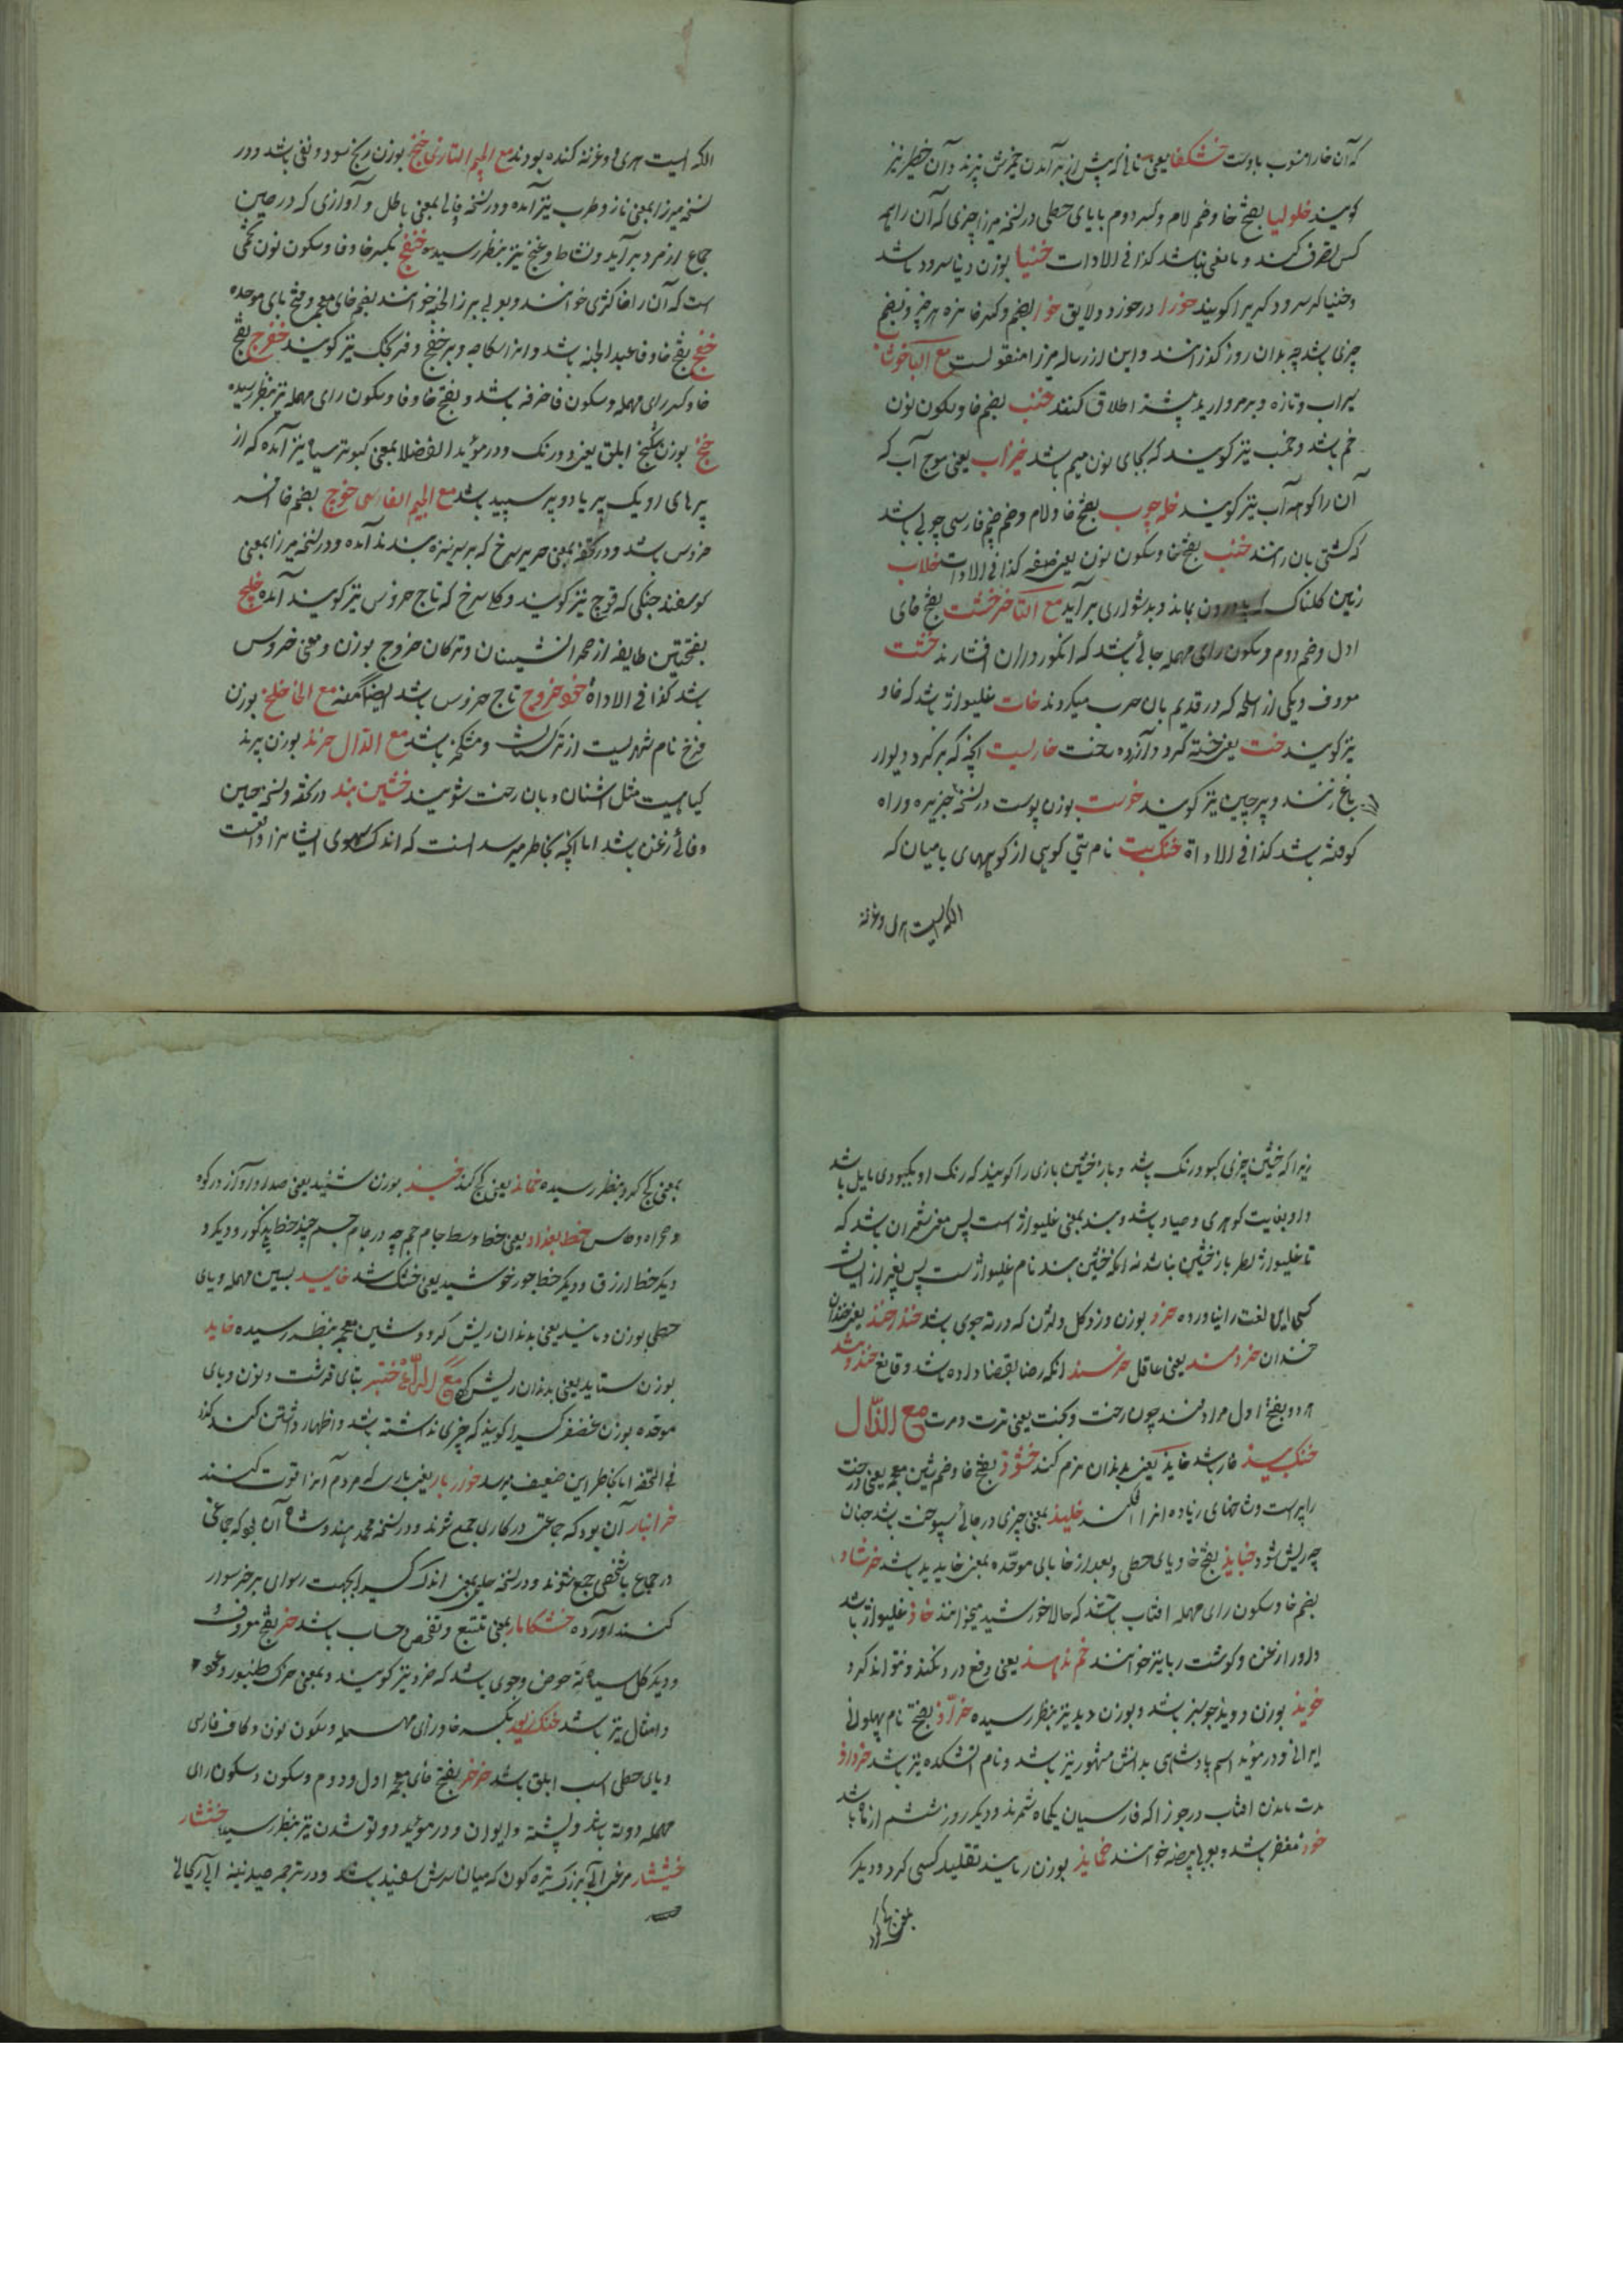 که آن خار منسوب باوست خشکفا یعنی نانی که پیش از برآمدن خمیرش پزند و آن خطیر نیز
گویند خلولیا بفتح خا و ضم لام و کسر دوم با یای حطی در نسخه میرزا چیزی که آن را همه
کس تصرف کنند و مانعی نباشد کذا فی الادات خنیا بوزن دنیا سرود باشد
و خنیاگر سرود گر را گویند خورا درخورد و لایق خوا بضم و کسر خا مزه هر چیز و بفتح
چیزی باشد چه بدان روز گذرانند و این از رساله میرزا منقولست مع البا خوشاب
سیراب و تازه و بر مروارید بیشتر اطلاق کنند خنب بضم خا و سکون نون
خم باشد و خمب نیز گویند که بجای نون میم باشد خیزاب یعنی موج آب که
آن را کوهه آب نیز گویند خله چوب بفتح خا و لام و ضم جیم فارسی چوبی باشد
که کشتی بان رانند خنب بفتح خا و سکون نون یعنی صفه کذا فی الادات خلاب
زمین گلناک که بدورون بماند و بدشواری برآید مع التا خرخشت بفتح خای
اول و ضم دوم و سکون رای مهمله جائی باشد که انگور در ان افشارند خشت
معروف و یکی از اسلحه که در قدیم بان حرب میکردند خات غلیواژ باشد که خاد
نیز گویند خست یعنی خسته کرد و آزرده ساخت خاربست آنچه که بر گرد دیوار
باغ زنند و پرچین نیز گویند خوست بوزن پوست در نسخه جزیره و راه
کوفته باشد کذا فی الاداة خنک بت نام بتی کوهی از کوههای بامیان که
الکه ایست هری و غزنه
الکه ایست هری و غزنه کنده بودند مع الجیم التازی خنج بوزن رنج سود و نفع باشد و در
نسخه میرزا بمعنی ناز و طرب نیز آمده و در نسخه وفائی بمعنی باطل و آوازی که در حین
جماع از مرد برآید و نشاط و غنج نیز بنظر رسیده خنفج بکسر خا و فا و سکون نون تخمی
است که آن را خاکشی خوانند و بعربی بزر الخبه خوانند بضم خای معجمه و فتح بای موحده
خفج بفتح خا و فا عبد الجنه باشد و انرا سکاچه و برخفج و فرنجک نیز گویند خفرج بفتح
خا و کسر رای مهمله و سکون فا خرفه باشد و بفتح خا و فا و سکون رای مهمله نیز بنظر رسیده
خلنج بوزن شکنج ابلق یعنی دو رنگ و در مؤید الفضلا بمعنی کبوتر سیاه نیز آمده که از
پرهای او یک پر یا دو پر سپید باشد مع الجیم الفارسی خوچ بضم خا افسر
خروس باشد و در تحفه بمعنی حریر سرخ که بر سر نیزه بندند آمده و در نسخه میرزا بمعنی
گوسفند جنگی که قوچ نیز گویند و کلاه سرخ که تاج خروس نیز گویند آمده خلج
بفتحتین طایفه از صحرانشینان و ترکان خروج بوزن و معنی خروس
باشد کذا فی الاداة خود خروج تاج خروس باشد ایضا منه مع الخا خلخ بوزن
فرخ نام شهریست از ترکستان و مشک خیز باشد مع الدال خرند بوزن پرند
گیاهیست مثل اشنان و بان رخت شویند خشین پند در تحفه و نسخه حسین
وفائی زغن باشد اما آنچه بخاطر میرسد انست که اندک سهوی ایشانرا واقعست
زیرا که خشین چیزی کبود رنگ باشد و باز خشین بازی را گویند که رنگ او بکبودی مایل باشد
و او بغایت کوهری و صیاد باشد و پند بمعنی غلیواژ است پس معنی شعر ان باشد که
تا غلیواژ بطرز باز خشین نباشد نه انکه خشین پند نام غلیواژست پس بغیر از ایشان
کسی این لغت را نیاورده خرد بوزن و زد گل و لژن که در ته جوی باشد خند خند یعنی خندان
خندان خردمند یعنی عاقل خرسند انکه رضا بقضا داده باشد و قانع خند و مند
هر دو بفتح اول مرادفند چون رخت و پخت یعنی ترت و مرت مع الذال
خنک بید خار باشد خاید یعنی بدندان نرم کند خشود بفتح خا و ضم شین معجمه یعنی درخت
را پیراست و شاخهای زیاده انرا افکند خلید بمعنی چیزی در جائی سپوخت باشد چنان
چه ریش شود خبایذ بفتح خا و یای حطی و بعد از خا بای موحده بمعنی خایید باشد خرشاد
بضم خا و سکون رای مهمله افتاب باشد که حالا خورشید میخوانند خاذ غلیواژ باشد
و او را زغن و گوشت ربا نیز خوانند خم ندهند یعنی دفع در نکند و نتواند کرد
خوید بوزن دوید جو سبز باشد و بوزن دید نیز بنظر رسیده خراد بفتح نام پهلوانی
ایرانی و در مؤید اسم پادشاهی بدانش مشهور نیز باشد و نام آتشکده نیز باشد خرداد
مدت ماندن افتاب در جوزا که فارسیان یکماه شمرند و دیگر روز ششم از ماه باشد
خود مغفر باشد و بعربی بیضه خوانند خماید بوزن رباید تقلید کسی کرد و دیگر
بمعنی کج کرد
بمعنی کج کرد بنظر رسیده خماند یعنی کج کند خنید بوزن شنید یعنی صدا و آواز در کوه
و حمام و طاس خط بغداد یعنی خط وسط جام جم چه در جام جم چند خط مذکور و دیگر
دیگر خط ازرق و دیگر خط جور خوشید یعنی خشک شد خایید بسین مهمله و یای
حطی بوزن و مانید یعنی بدندان ریش کرد و شین معجمه بنظر رسیده خاید
بوزن ستاید یعنی بدندان ریش کند مع الراء خنتبر بتای قرشت و نون و بای
موحده بوزن غضنفر کسیرا گویند که چیزی نداشته باشد و اظهار داشتن کند کذا
فی التحفه اما بخاطر این ضعیف میرسد خوزربار یعنی بارهای که مردم انرا قوت کنند
خرانبار آن بود که جماعتی در کاری جمع شوند و در نسخه محمد هندوشاه آن بود که جماعتی
در جماع با شخصی جمع شوند و در نسخه حلیمی یعنی اندک کسیرا بجهت رسوائی بر خر سوار
کنند آورده خشکامار بمعنی تتبع و تفحص و حساب باشد خر بفتح معروفست
و دیگر گل سیاه ته حوض و جوی باشد که خرد نیز گویند و بمعنی خرک طنبور و عود
و امثال نیز باشد خنک زیور بکسر خا و زای معجمه و سکون نون و کاف فارسی
و یای حطی اسب ابلق باشد خرخر بفتح خای معجمه اول و دوم و سکون و سکون رای
مهمله دوته باشد و پشته و ایوان و در مؤید دوتو شدن نیز بنظر رسید خشنشار
خشیشار مرغ آبی بزرگ تیره گون که میان سرش سفید باشد و در ترجمه صیدنه ابی آریحانی